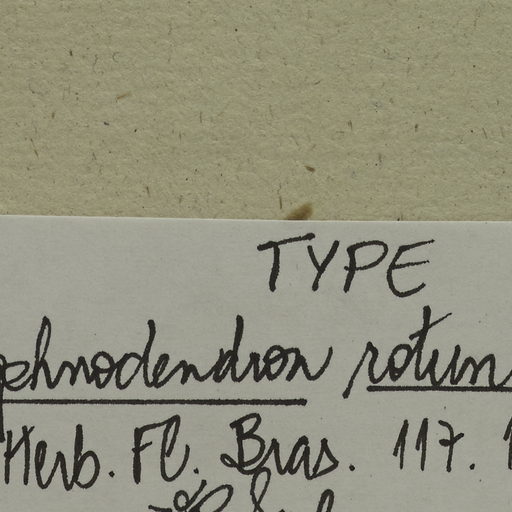 TYPE
phnodendron rotun
Herb. Fl. Bras. 117.